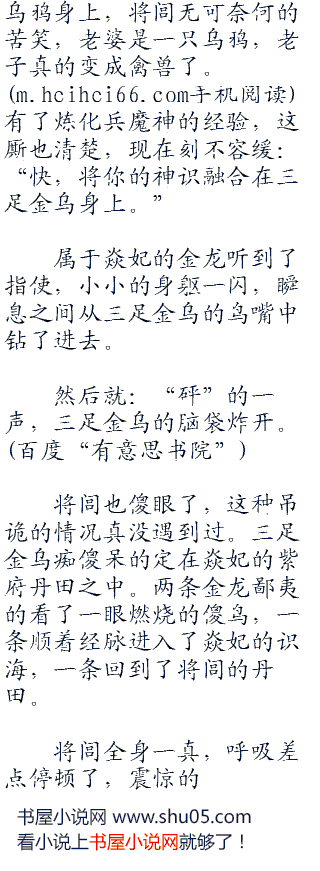 乌鸦身上，将闾无可奈何的
苦笑，老婆是一只乌鸦，老
子真的变成禽兽了。
(m.hcihci66.com手机阅读)
有了炼化兵魔神的经验，这
厮也清楚，现在刻不容缓：
“快，将你的神识融合在三
足金乌身上。”
属于焱妃的金龙听到了
指使，小小的身躯一闪，瞬
息之间从三足金乌的鸟嘴中
钻了进去。
然后就：“砰”的一
声，三足金乌的脑袋炸开。
(百度“有意思书院”)
将闾也傻眼了，这种吊
诡的情况真没遇到过。三足
金乌痴傻呆的定在焱妃的紫
府丹田之中。两条金龙鄙夷
的看了一眼燃烧的傻鸟，一
条顺着经脉进入了焱妃的识
海，一条回到了将闾的丹
田。
将闾全身一真，呼吸差
点停顿了，震惊的
书屋小说网 www.shu05.com
看小说上书屋小说网就够了！